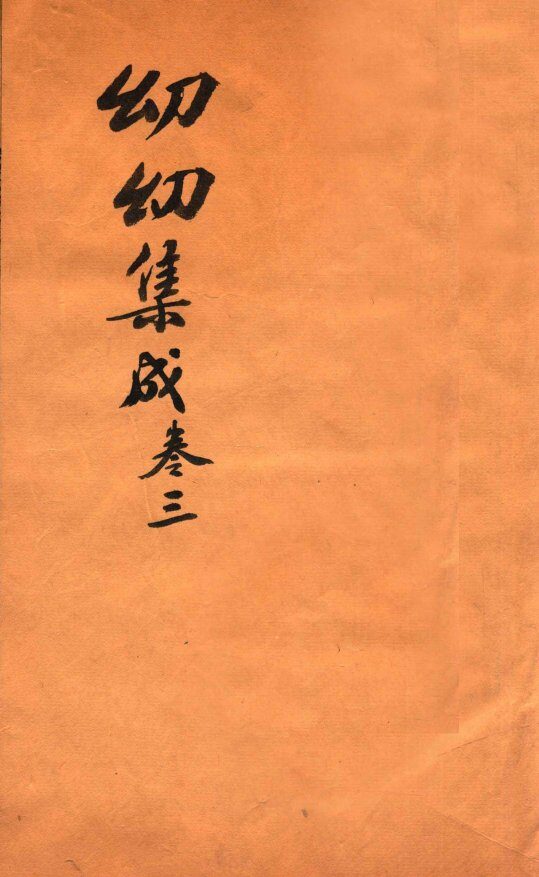 幼幼集成卷三